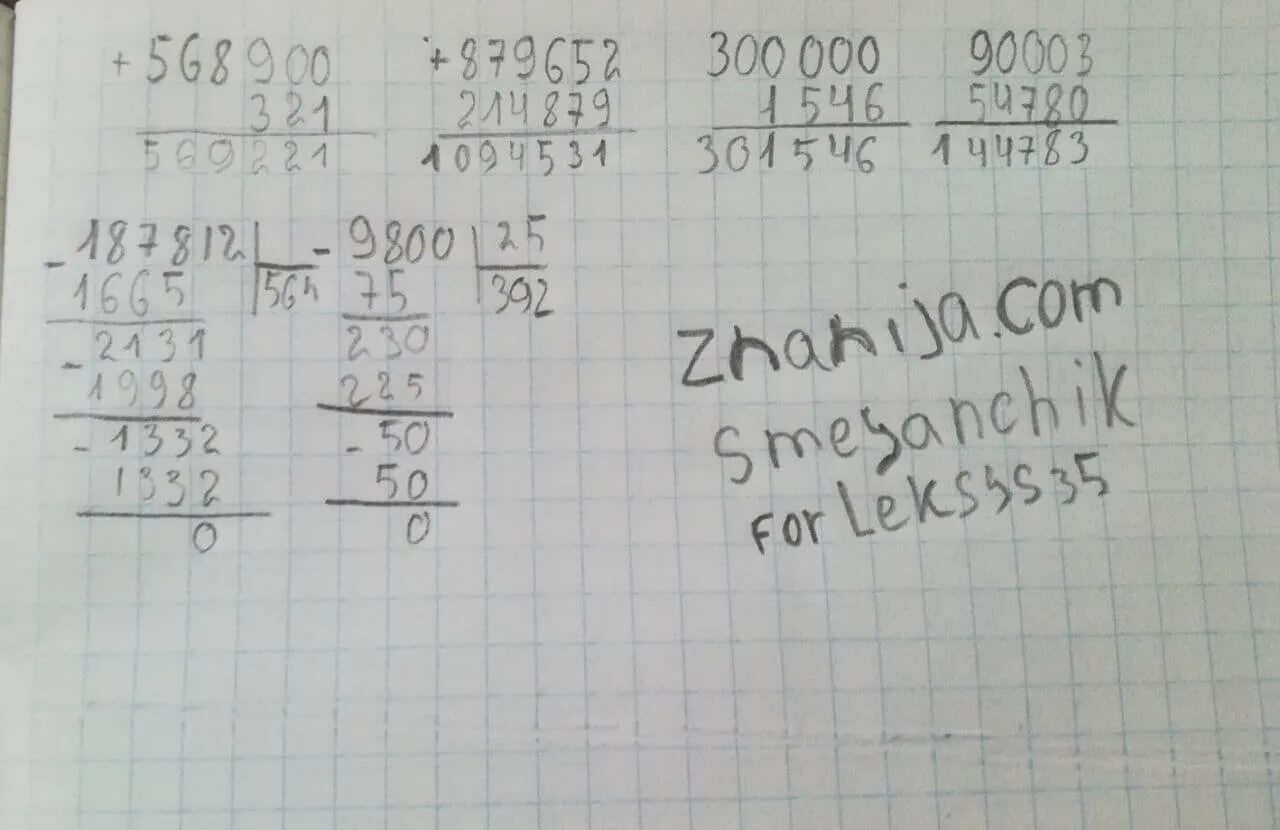 + 568900 + 879652 300000 90003
321 214879 1546 54780
569221 1094531 301546 144783
- 187812 - 9800 25
1665 564 75 392
- 2131 230
1998 225
- 1332 - 50
1332 50
0 0
znanija.com
smesanchik
For Lekssss35